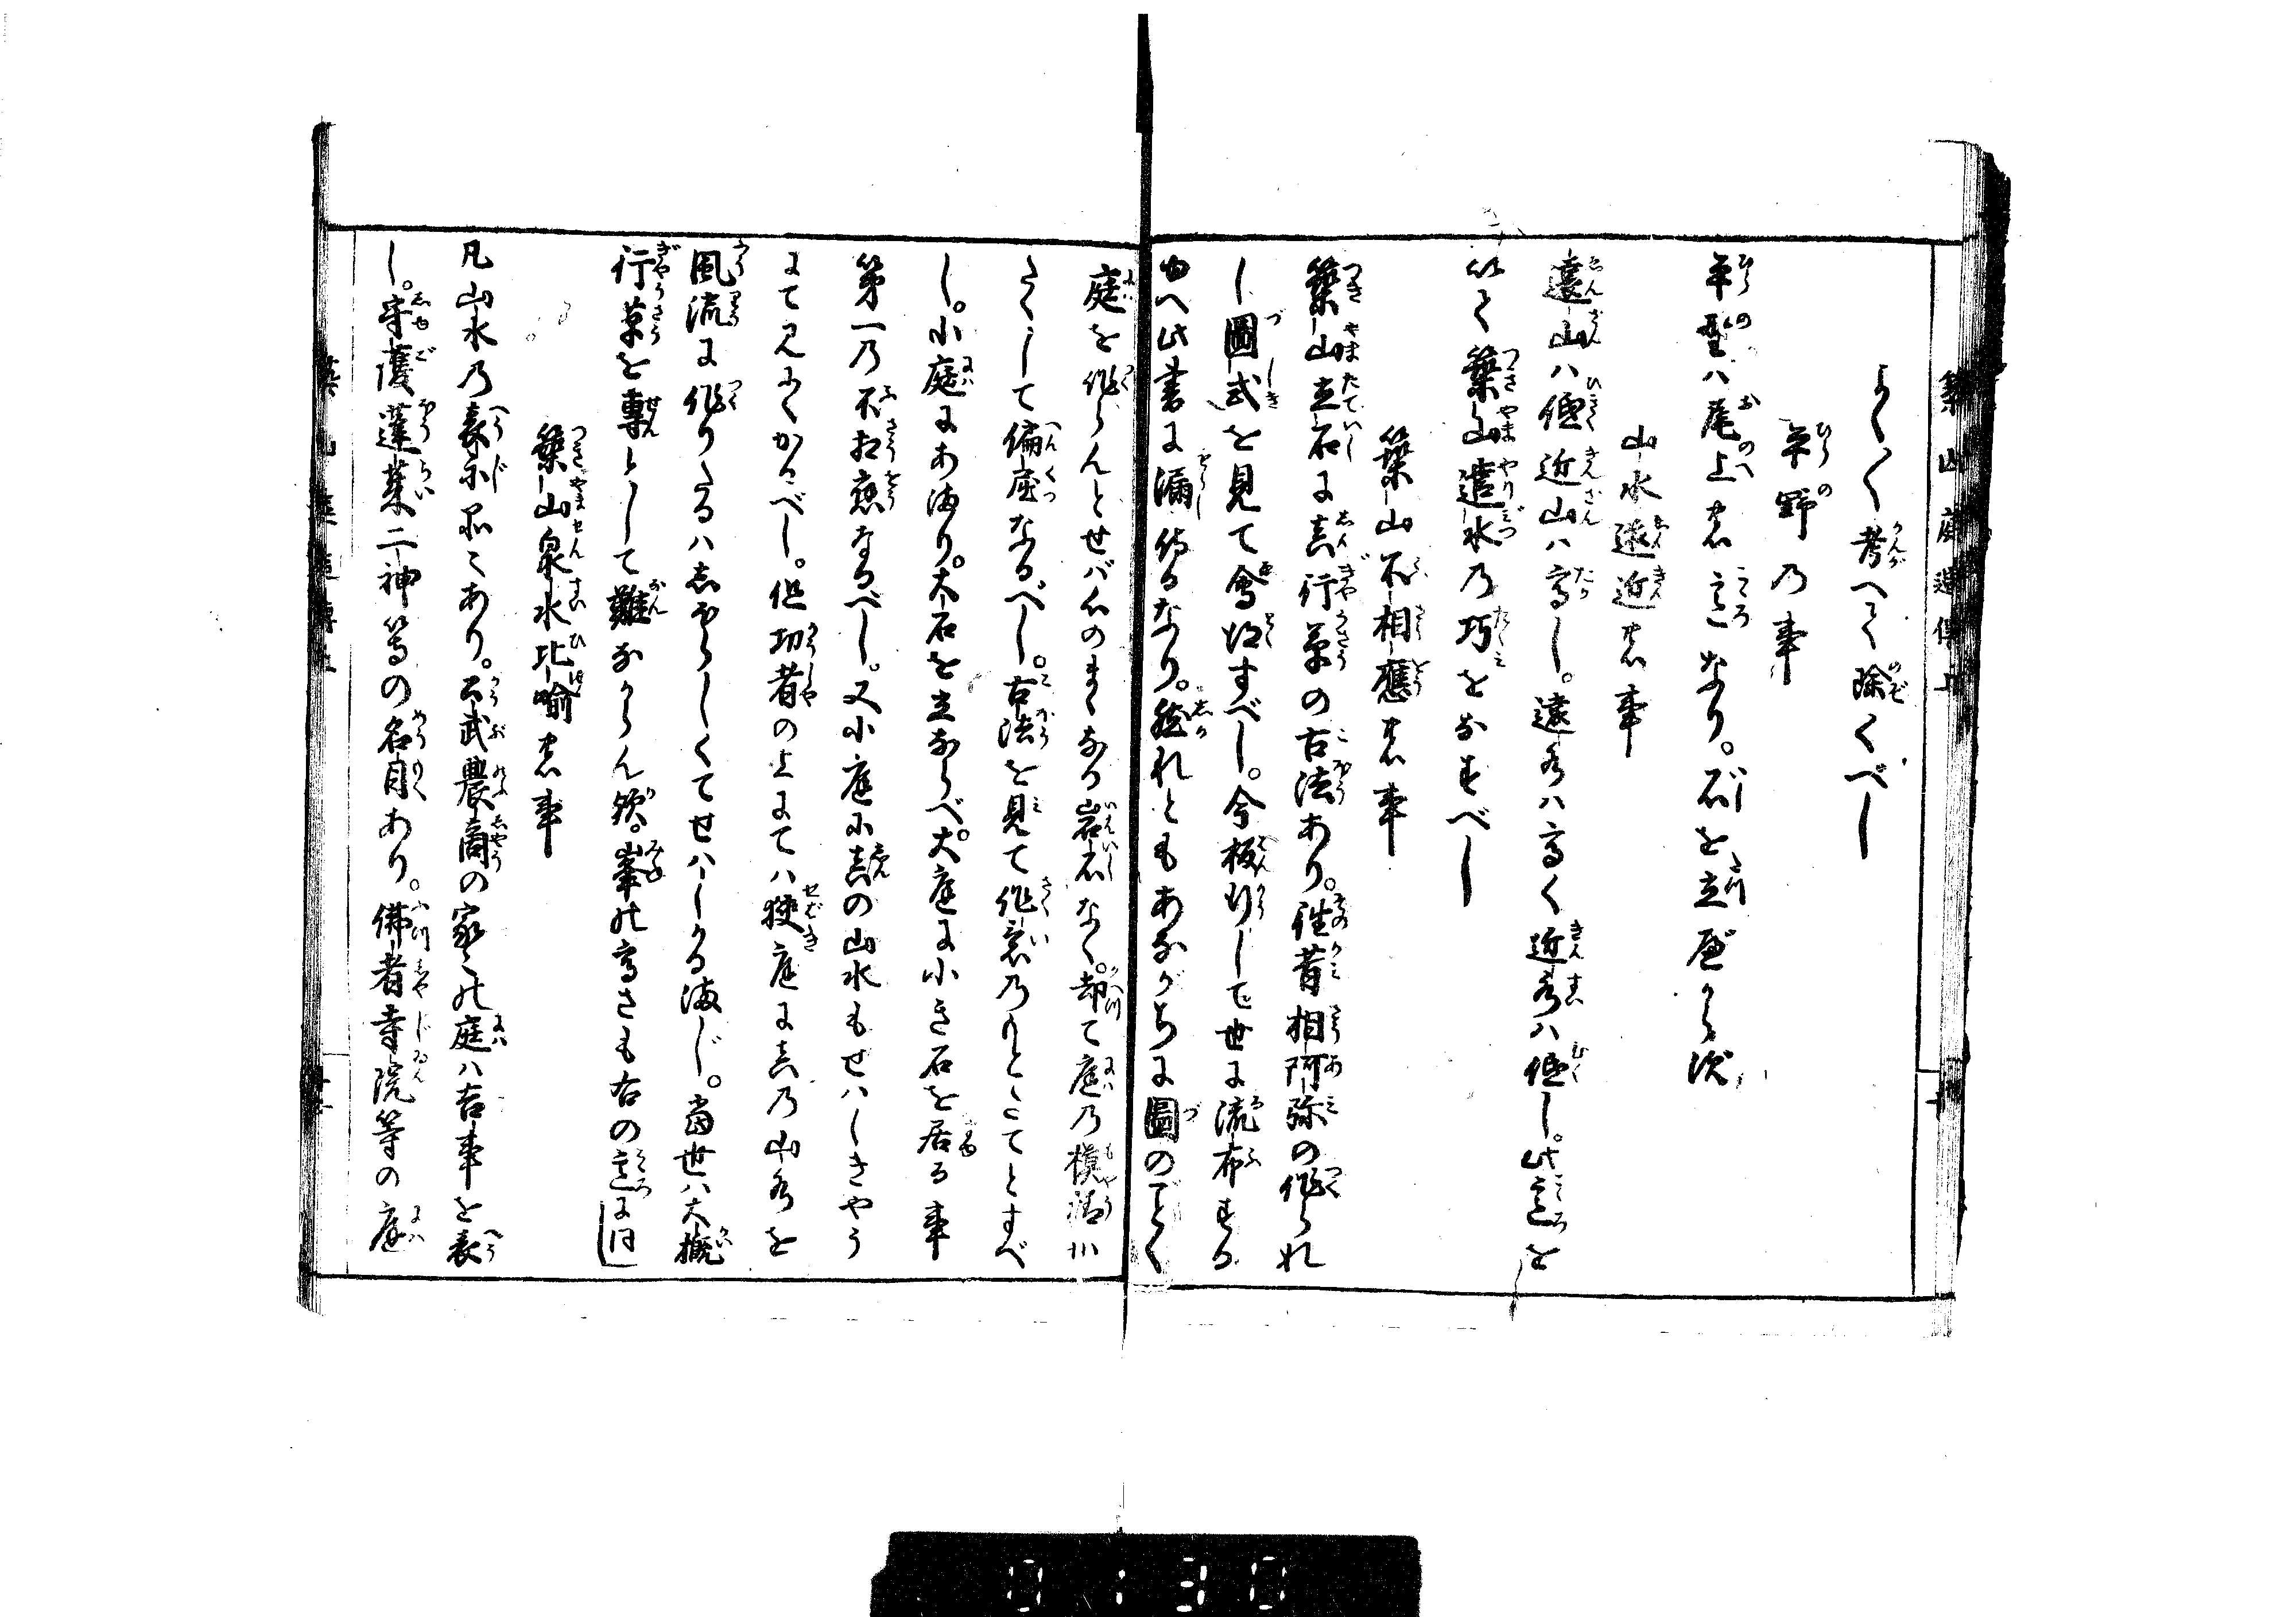 築山庭造傳上
よく〳〵考へて除くべし
平野乃事
平野ハ尾上の意なり。石を立べからず
山水遠近の事
遠山ハ低近山ハ高し。遠水ハ高く近水ハ低し。此意を
以て築山遣水乃巧をなすべし
築山不相應の事
築山立石に真行草の古法あり。往昔相阿弥の作られ
し圖式を見て會得すべし。今板行して世に流布する
ゆへ此書に漏し侍るなり。然れともあながちに圖のごとく
庭を作らんとせバ心のまゝなる岩石なく。却て庭乃模様
たくして偏屈なるべし。古法を見て作意乃りとたてとすべ
し。小庭にあまり。大石を立ならべ。大庭に小き石を居る事
第一乃不相應なるべし。又小庭に真の山水もせハしきやう
にて見にくかるべし。但功者の上にてハ狭庭に真乃山水を
風流に作りたるハしほらしくてせハしかるまじ。當世ハ大概
行草を專として難なからん歟。峯の高さも右の意に同し
築山泉水比喩の事
凡山水乃表示品々あり。公武農商の家々の庭ハ吉事を表
し。守護蓬莱二神等の名目あり。佛者寺院等の庭
0130